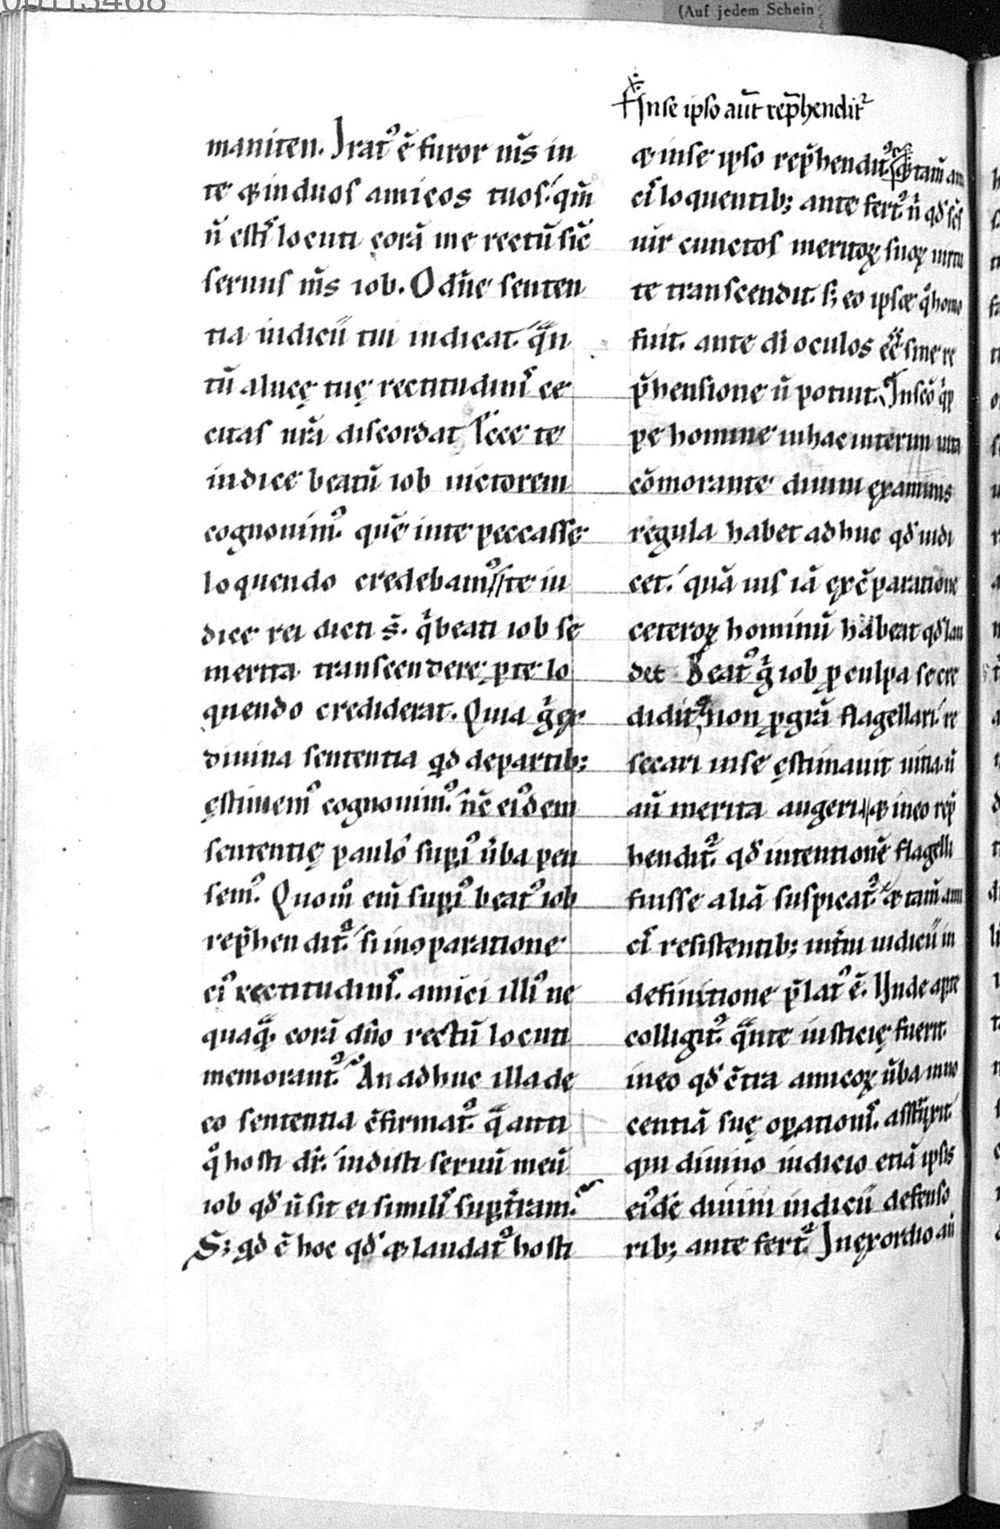 00113468
(Auf jedem Schein
In se ipso aut̄ rep̄hendit᷑
maniten. Irat᷒ ē furor m̄s in
te & in duos amicos tuos. qm̄
n̄ estis locuti corā me rectū sic̄
seruus m̄s iob. O dn̄e senten
tia iudicii tui iudicat qūn
tū a lucę tuę rectitudinis ce
citas nr̄a discordat Ecce te
iudice beatū iob uictorem
cognouim᷒. quē in te peccasse
loquendo credebam᷒ te iu
dice rei dicti s̄. q̇ beati iob se
merita transcendere p te lo
quendo crediderat. Quia ḡ
diuina sententia qd de partib;
ęstimem᷒ cognouim᷒. nc̄ ei᷒dem
sententię paulo sup̄i᷒ ūba pen
sem᷒. Quom̊ eni sup̄i᷒ beat᷒ iob
rep̄hendit᷑. si in oparatione
ei᷒ rectitudinis. amici illi᷒ ne
quaq̄. corā dn̄o rectū locuti
memorant᷑. An adhuc illa de
eo sententia c̄firmat᷑. q̄ anti
q̊ hosti dr̄. uidisti seruū meū
iob qd̓ n̄ sit ei similis sup̄ t̄ram.
S; qd ē hoc qd̓ & laudat᷑ hosti
& in se ipso rep̄hendit᷑ & tam̄ am
cis loquentib; ante fert᷑. n̄ qd̓ sc̄s
uir cunctos meritoꝝ suoꝝ uirtu
te transcendit. s; eo ipso q̊ homo
fuit. ante di oculos ec̄ sine re
p̄hensione n̄ potuit. In scō q̇p
pe homine in hac interim uita
cōmorante diuini examinis
regula habet adhuc qd̓ iudi
cet. quā uis iā ex c̄paratione
ceteroꝝ hominū habeat qd̓ lau
det Beat᷒ ḡ iob p culpa se cre
didit non p grā flagellari. re
secari in se ęstimauit uitia n̄
aū merita augeri & in eo rep̄
hendit᷑. qd̓ intentionē flagelli
fuisse aliā suspicat᷑. & tam̄ ami
cis resistentib; int̄im iudicii in
definitione p̄lat᷒ ē. Unde apte
colligit᷑. q̄nte iusticię fuerit
in eo qd̓ c̄tra amicoꝝ ūba inno
centiā suę opationis. assēruit
qui diuino iudicio etiā ipsis
ei᷒dē diuini iudicii defenso
rib; ante fert᷑. In exordio aū